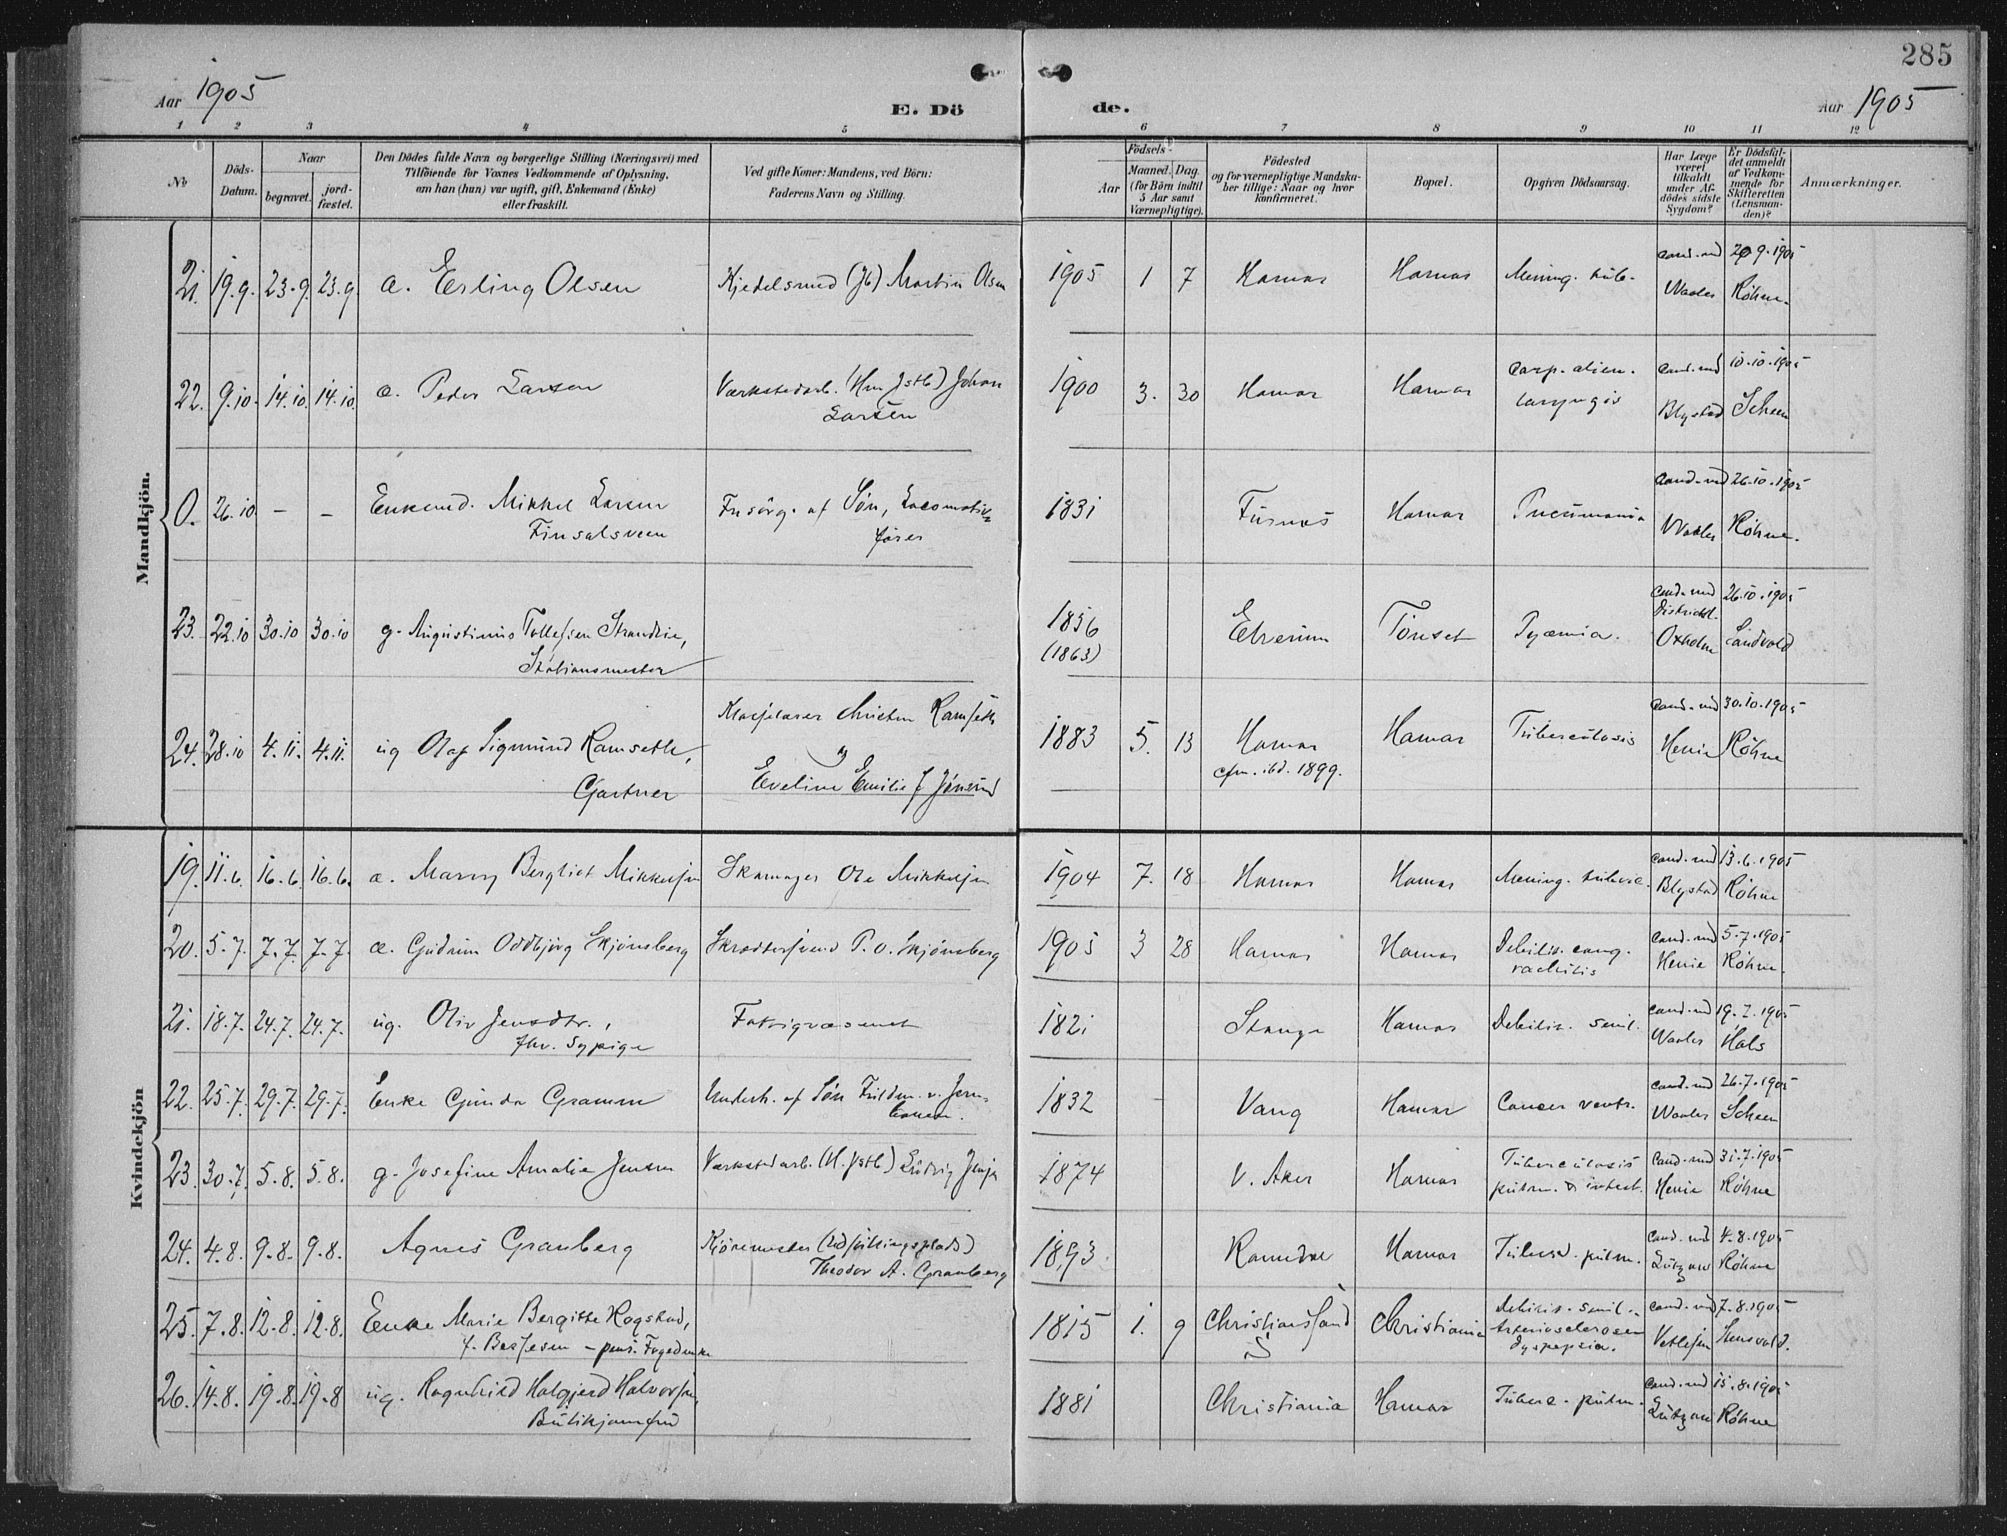 285
Aar 1905
E. Dö
de.
Aar 1905
1 2 3 4 5 6 7 8 9 10 11 12
No
Döds-Datum.
Naar
begravet.
jord-fæstet.
Den Dödes fulde Navn og borgerlige Stilling (Næringsvei) med
Tilföiende for Voxnes Vedkommende af Oplysning,
om han (hun) var ugift, gift, Enkemand (Enke)
eller fraskilt.
Ved gifte Koner: Mandens, ved Börn:
Faderens Navn og Stilling.
Födsels-
Aar
Maaned. Dag.
(for Börn indtil
5 Aar samt
Værnepligtige).
Födested
og for værnepligtige Mandska-
ber tillige: Naar og hvor
konfirmeret.
Bopæl.
Opgiven Dödsaarsag.
Har Læge
været
tilkaldt
under Af-
dödes sidste
Sygdom?
Er Dödsfal-
det anmeldt
af Vedkom-
mende for
Skifteretten
(Lensman-
den)?
Anmærkninger.
Mandkjön.
21. 19.9. 23.9. 23.9. a. Erling Olsen Kjedelsmed (Jb) Martin Olsen 1905 1 7 Hamar Hamar Mening. tub. cand. md Waaler 20 9.1905 Röhne.
22. 9.10. 14.10. 14.10. a. Peder Larsen Værkstedarb. (Hm Jstb) Johan Larsen 1900 3. 30 Hamar Hamar Corp. alien. laryngis cand. md Blystad 10.10.1905 Scheen
0. 26.10 - - Enkemd. Mikkel Larsen Finsalsveen Forsörg. af Sön, Locomotiv förer 1831 Furnes Hamar Pneumonia cand. md Waaler 26.10.1905 Röhne.
23. 22.10 30.10 30.10 g. Augustinus Tollefsen Strandlie, Stationsmester 1856 (1863) Elverum Tönset Pyæmia. cand. md Districtsl. Oxholm 26.10.1905 Sandvold
24. 28.10 4.11. 4.11. ug Olaf Sigmund Ramseth, Gartner Ramseth og Eveline Emilie f Jönsrud 1883 5. 13 Hamar cfm. ibd. 1899. Hamar Tuberculosis cand. md Henie 30.10.1905 Röhne
Kvindekjön
19. 11.6. 16.6. 16.6. a. Marny Bergliot Mikkelsen Skomager Ole Mikkelsen 1904 7. 18 Hamar Hamar Mening. tuberc. cand. md Blystad 13.6.1905 Röhne
20. 5.7. 7.7. 7.7. a. Gudrun Oddbjörg Skjönsberg Skrædersvend P. O. Skjönsberg 1905 3 28 Hamar Hamar Debilit. cong. rachitis cand. md Henie 5.7.1905 Röhne.
21. 18.7. 24.7. 24.7. ug. Oliv Jensdtr., fhv. Sypige Fattigvæsenet 1821 Stange Hamar Debilit. senil. cand. md Waaler 19.7.1905 Hals
22. 25.7. 29.7. 29.7. Enke Gunda Gramm Underh. af Sön Fuldm. v. Jernbanen. 1832 Vang Hamar Cancer ventr. cand. md Waaler 26.7.1905 Scheen
23. 30.7. 5.8. 5.8. g. Josefine Amalie Jensen Værkstedarb. (H. Jstb) Ludvig Jensen 1874 V. Aker Hamar Tuberculosis pulm. & intest. cand. md Henie 31.7.1905 Röhne
24. 4.8. 9.8. 9.8. Agnes Granberg Kjöremester (Udskibningsplads) Theodor A. Granberg 1893 Romedal Hamar Tuberc. pulm. cand. md Lützow 4.8.1905 Röhne
25. 7.8. 12.8. 12.8. Enke Marie Bergitte Rogstad, f. Bessesen - pens. Fogedenke 1815 1. 9 Christianssand S Christiania Debilit. senil. Arteriosclerosen dyspepsia. cand. md Vetlesen 7.8.1905 Stensvold.
26. 14.8. 19.8. 19.8 ug. Ragnhild Halgjerd Halvorsen, Butikjomfru 1881 Christiania Hamar Tuberc. pulm. cand. md Lützow 15.8.1905 Röhne